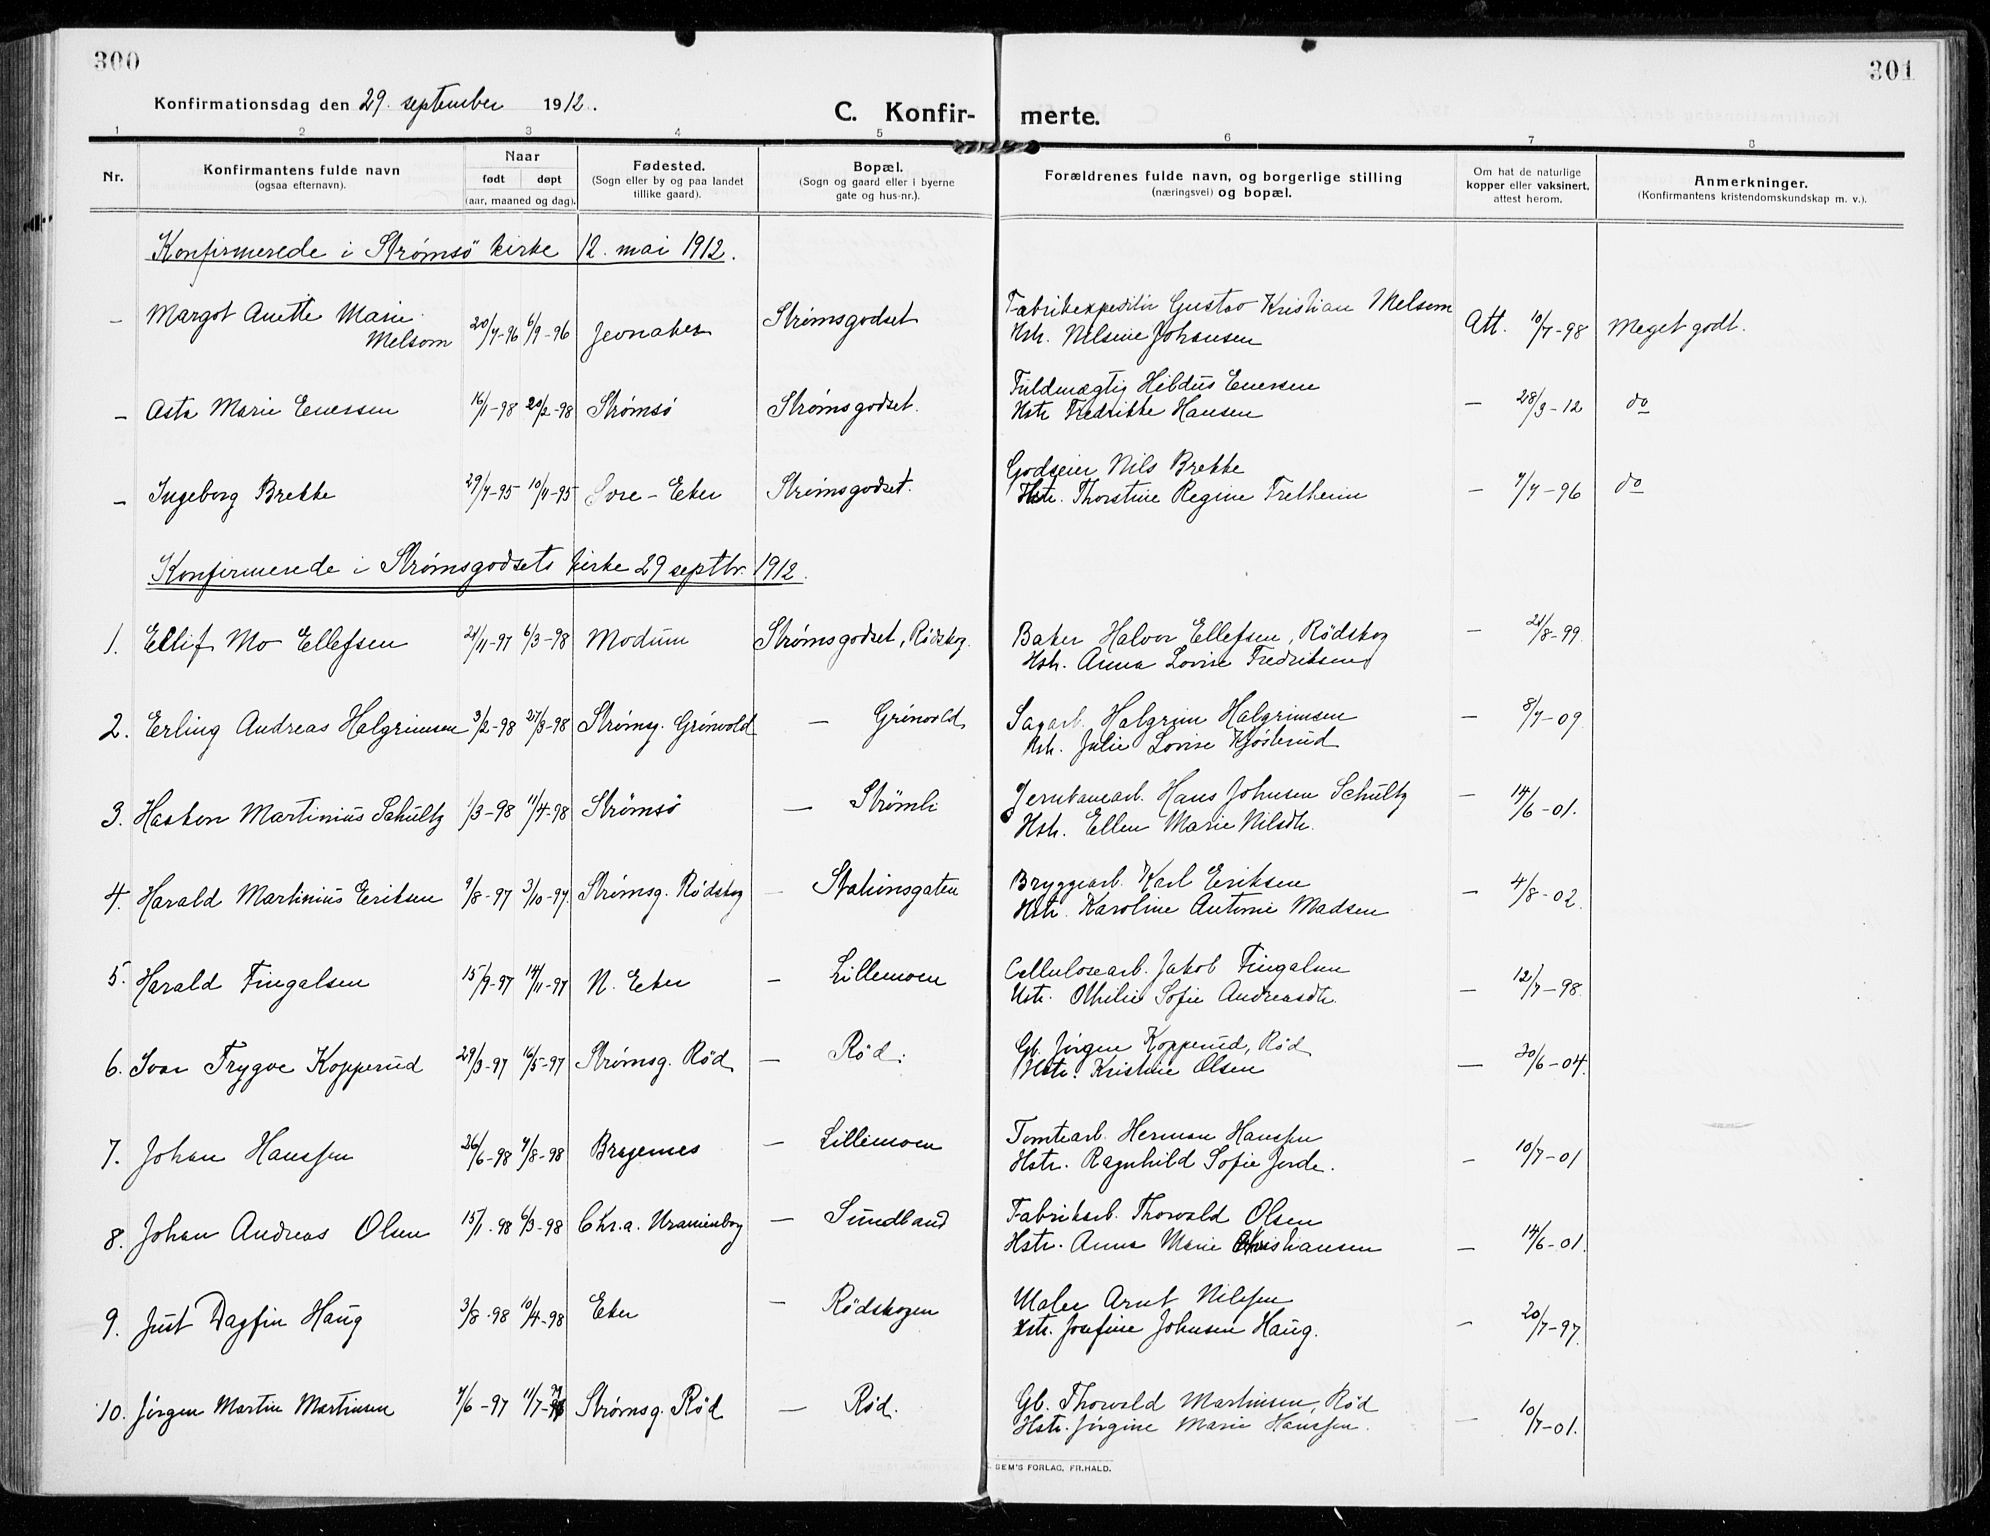 300
301
Konfirmationsdag den 29. september 1912.
C. Konfir-
merte.
1 2 3 4 5 6 7 8
Nr.
Konfirmantens fulde navn
(ogsaa efternavn).
Naar
født døpt
(aar, maaned og dag).
Fødested.
(Sogn eller by og paa landet
tillike gaard).
Bopæl.
(Sogn og gaard eller i byerne
gate og hus-nr.).
Forældrenes fulde navn, og borgerlige stilling
(næringsvei) og bopæl.
Om hat de naturlige
kopper eller vaksinert,
attest herom.
Anmerkninger.
(Konfirmantens kristendomskundskap m. v.).
Konfirmerede i Strømsö kirke 12. mai 1912.
– Margot Anette Marie
Melsom 20/7-96 6/9-96 Jevnaker Strømsgodset Fabrikexpeditør Gustav Kristian Melsom
Hstr. Nilsine Johansen Att. 10/7-98 Meget godt.
– Asta Marie Enersen 16/1-98 20/2-98 Strømsø Strømsgodset. Fuldmægtig Hildus Enersen
Hstr Fredrikke Hansen – 28/3-12 do
– Ingeborg Brekke 29/7-95 10/11-95 Øvre-Eker Strømsgodset. Godseier Nils Brekke
Hstr. Thorstine Regine Tretheim – 7/7-96 do
Konfirmerede i Strømsgodsets kirke 29 septbr. 1912.
1. Ellif Mo Ellefsen 21/11-97 6/3-98 Modum Strømsgodset, Rødskog. Baker Halvor Ellefsen, Rødskog
Hstr. Anna Lovise Fredriksen – 21/8-99.
2. Erling Andreas Halgrimsen 3/2-98 27/3-98 Strømsg. Grönvold – Grönvold Sagarb. Halgrim Halgrimsen
Hstr. Julie Lovise Kjøsterud – 8/7-09
3. Haakon Martinius Schultz 1/3-98 11/4-98 Strømsö – Strømli Jernbanearb. Hans Johnsen Schultz
Hstr. Ellen Marie Nilsdtr. – 14/6-01.
4. Harald Martinius Eriksen 9/8-97 3/10-97. Strømsg. Rødskog – Stationsgaten Bryggearb. Karl Eriksen
Hstr. Karoline Antonie Madsen – 4/8-02.
5. Harald Fingalsen 15/9-97 14/11-97 N. Eker – Lillemoen Cellulosearb. Jakob Fingalsen
Hstr. Othilie Sofie Andreasdtr. – 12/7-98.
6. Ivar Trygve Kopperud 29/3-97 16/5-97 Strømsg. Rød – Rød. Gb. Jörgen Kopperud, Rød
Hstr. Kristine Olsen – 20/6-04.
7. Johan Hanssen 26/6-98 7/8-98 Bragernes – Lillemoen Tomtearb. Herman Hanssen
Hstr. Ragnhild Sofie Jorde. – 10/7-01
8. Johan Andreas Olsen 15/1.98 6/3-98 Chr.a. Uranienborg – Sundland Fabrikarb. Thorvald Olsen
Hstr. Anna Marie Christiansen – 14/6-01.
9. Just Dagfin Haug 3/8.98 10/4-98 Eker – Rødskogen Maler Arnt Nilssen
Hstr. Josefine Johnsen Haug. – 20/7-97.
10. Jørgen Martin Martinsen 7/6-97 11/7-97 Strømsg. Rød – Rød. Gb. Thorvald Martinsen, Rød
Hstr. Jörgine Marie Hanssen. – 10/7-01.
SEM'S FORLAG, FR.HALD.